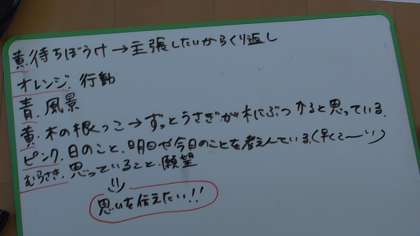 黄.待ちぼうけ→主張したいからくり返し
オレンジ.行動
青.風景
黄.木の根っこ→ずっとうさぎが木にぶつかると思っている.
ピンク.日のこと.明日や今日のことを考えている.(早くこ〜い)
むらさき.思っていること.願望
思いを伝えたい!!